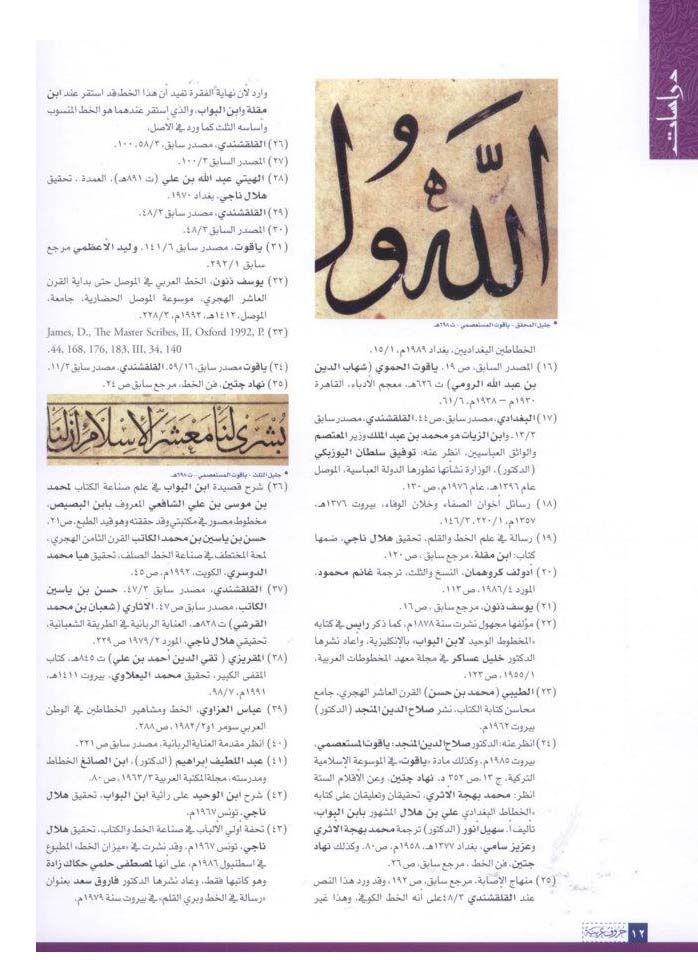 دراسات
الله ول
• جليل المحقق - ياقوت المستعصمي - ت٦٩٨هـ
الخطاطين البغداديين، بغداد ١٩٨٩م، ١٥/١.
(١٦) المصدر السابق، ص ١٩. ياقوت الحموي (شهاب الدين
بن عبد الله الرومي) ت ٦٢٦هـ، معجم الأدباء، القاهرة
١٩٣٠م – ١٩٣٨م، ٦١/٦.
(١٧) البغدادي، مصدر سابق، ص ٤٤. القلقشندي، مصدر سابق
١٣/٣. وابن الزيات هو محمد بن عبد الملك وزير المعتصم
والواثق العباسيين، انظر عنه: توفيق سلطان اليوزبكي
(الدكتور)، الوزارة نشأتها تطورها الدولة العباسية، الموصل
عام ١٣٩٦هـ، عام ١٩٧٦م، ص ١٣٠.
(١٨) رسائل أخوان الصفاء وخلان الوفاء، بيروت ١٣٧٦هـ،
١٣٥٧م، ٢٢٠/١، ١٤٦/٣.
(١٩) رسالة في علم الخط والقلم، تحقيق هلال ناجي، ضمها
كتاب: ابن مقلة، مرجع سابق، ص ١٢٠.
(٢٠) أدولف كروهمان، النسخ والثلث، ترجمة غانم محمود،
المورد ١٩٨٦/٤، ص ١١٣.
(٢١) يوسف ذنون، مرجع سابق، ص ١٦.
(٢٢) مؤلفها مجهول نشرت سنة ١٨٧٨م، كما ذكر رايس في كتابه
«المخطوط الوحيد لابن البواب» بالإنكليزية، وأعاد نشرها
الدكتور خليل عساكر في مجلة معهد المخطوطات العربية،
١٩٥٥/١، ص ١٢٣.
(٢٣) الطيبي (محمد بن حسن) القرن العاشر الهجري، جامع
محاسن كتابة الكتاب، نشر صلاح الدين المنجد (الدكتور)
بيروت ١٩٦٢م.
(٢٤) انظر عنه: الدكتور صلاح الدين المنجد: ياقوت المستعصمي،
بيروت ١٩٨٥م، وكذلك مادة «ياقوت» في الموسوعة الإسلامية
التركية، ج ١٣، ص ٣٥٢ د. نهاد جتين، وعن الأقلام الستة
انظر: محمد بهجة الأثري، تحقيقات وتعليقات على كتابه
«الخطاط البغدادي علي بن هلال المشهور بابن البواب»
تأليف أ. سهيل أنور (الدكتور) ترجمة محمد بهجة الأثري
وعزيز سامي، بغداد ١٣٧٧هـ، ١٩٥٨م، ص ٨٠. وكذلك نهاد
جتين، فن الخط، مرجع سابق، ص ٢٦.
(٢٥) منهاج الإصابة، مرجع سابق، ص ١٩٢، وقد ورد هذا النص
عند القلقشندي ٤٨/٣ على أنه الخط الكوفي، وهذا غير
وارد لأن نهاية الفقرة تفيد أن هذا الخط قد استقر عند ابن
مقلة وابن البواب، والذي استقر عندهما هو الخط المنسوب
وأساسه الثلث كما ورد في الأصل.
(٢٦) القلقشندي، مصدر سابق، ٥٨/٣، ١٠٠.
(٢٧) المصدر السابق ١٠٠/٣.
(٢٨) الهيتي عبد الله بن علي (ت ٨٩١هـ)، العمدة، تحقيق
هلال ناجي، بغداد ١٩٧٠.
(٢٩) القلقشندي، مصدر سابق، ٤٨/٣.
(٣٠) المصدر السابق ٤٨/٣.
(٣١) ياقوت، مصدر سابق ١٤١/٦. وليد الأعظمي مرجع
سابق ٢٩٢/١.
(٣٢) يوسف ذنون، الخط العربي في الموصل حتى بداية القرن
العاشر الهجري، موسوعة الموصل الحضارية، جامعة،
الموصل، ١٤١٢هـ، ١٩٩٢م، ٢٢٨/٣.
(٣٣) James, D., The Master Scribes, II, Oxford 1992, P.
44, 168, 176, 183, III, 34, 140.
(٣٤) ياقوت مصدر سابق، ٥٩/١٦. القلقشندي، مصدر سابق ١١/٣.
(٣٥) نهاد جتين، فن الخط، مرجع سابق ص ٢٤.
بشرى لنا معشر الإسلام إن لنا
• جليل الثلث - ياقوت المستعصمي - ت٦٩٨هـ
(٣٦) شرح قصيدة ابن البواب في علم صناعة الكتاب لمحمد
بن موسى بن علي الشافعي المعروف بابن البصيص،
مخطوط مصور في مكتبتي وقد حققته وهو قيد الطبع، ص ٢١.
حسن بن ياسين بن محمد الكاتب القرن الثامن الهجري،
لمحة المختطف في صناعة الخط الصلف، تحقيق هيا محمد
الدوسري، الكويت، ١٩٩٢م، ص ٤٥.
(٣٧) القلقشندي، مصدر سابق ٤٧/٣. حسن بن ياسين
الكاتب، مصدر سابق ص ٤٧. الآثاري (شعبان بن محمد
القرشي) ت ٨٢٨هـ، العناية الربانية في الطريقة الشعبانية،
تحقيقي هلال ناجي، المورد ١٩٧٩/٢ ص ٢٣٩.
(٣٨) المقريزي (تقي الدين أحمد بن علي) ت ٨٤٥هـ، كتاب
المقفى الكبير، تحقيق محمد اليعلاوي، بيروت ١٤١١هـ،
١٩٩١م، ٩٨/٧.
(٣٩) عباس العزاوي، الخط ومشاهير الخطاطين في الوطن
العربي سومر ١و١٩٨٢/٢، ص ٢٨٨.
(٤٠) انظر مقدمة العناية الربانية، مصدر سابق ص ٢٢١.
(٤١) عبد اللطيف إبراهيم (الدكتور)، ابن الصائغ الخطاط
ومدرسته، مجلة المكتبة العربية ١٩٦٣/٣، ص ٨٠.
(٤٢) شرح ابن الوحيد على رائية ابن البواب، تحقيق هلال
ناجي، تونس ١٩٦٧م.
(٤٣) تحفة أولي الألباب في صناعة الخط والكتاب، تحقيق هلال
ناجي، تونس ١٩٦٧م، وقد نشرت في «ميزان الخط» المطبوع
في اسطنبول ١٩٨٦م، على انها لمصطفى حلمي حكاك زادة
وهو كاتبها فقط، وعاد نشرها الدكتور فاروق سعد بعنوان
«رسالة في الخط وبري القلم» في بيروت سنة ١٩٧٩م.
١٢ حروف عربية